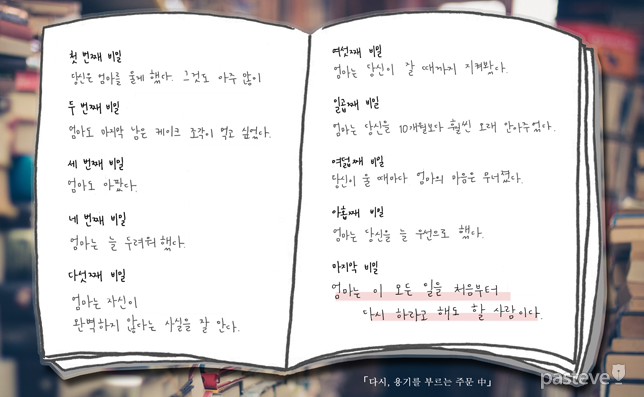 첫 번째 비밀
당신은 엄마를 울게 했다. 그것도 아주 많이
두 번째 비밀
엄마도 마지막 남은 케이크 조각이 먹고 싶었다.
세 번째 비밀
엄마도 아팠다.
네 번째 비밀
엄마는 늘 두려워했다.
다섯째 비밀
엄마는 자신이
완벽하지 않다는 사실을 잘 안다.
여섯째 비밀
엄마는 당신이 잘 때까지 지켜봤다.
일곱째 비밀
엄마는 당신을 10개월보다 훨씬 오래 안아주었다.
여덟째 비밀
당신이 울 때마다 엄마의 마음은 무너졌다.
아홉째 비밀
엄마는 당신을 늘 우선으로 했다.
마지막 비밀
엄마는 이 모든 일을 처음부터
다시 하라고 해도 할 사람이다.
「다시, 용기를 부르는 주문 中」
pasteve